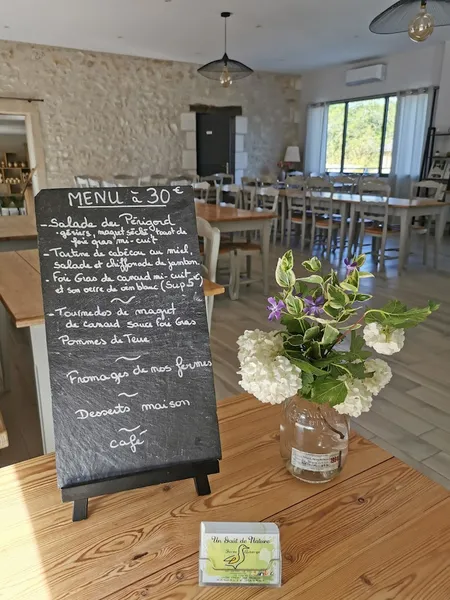 MENU à 30 €
- Salade du Périgord
gésiers, magret séché, toast de
foie gras mi-cuit
- Tartine de cabécou au miel,
Salade et chiffonade de jambon
- Foie Gras de canard mi-cuit
et son verre de vin blanc (Sup 5€)
- Tournedos de magret
de canard sauce Foie Gras
Pommes de Terre
Fromages de nos fermes
Desserts maison
café
Un Bruit de Nature